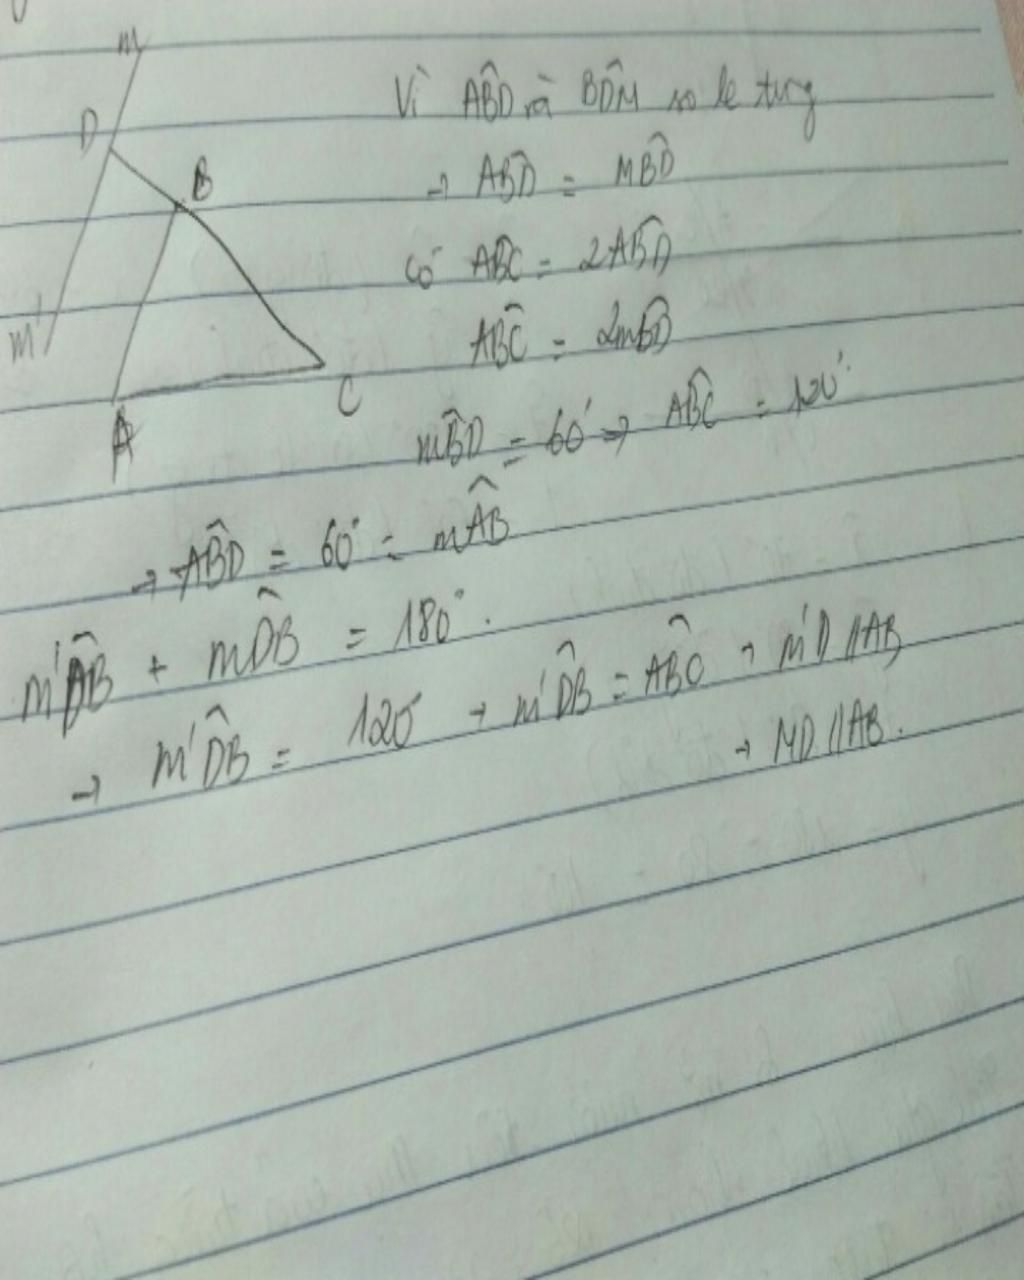 M
D
B
M'
A
C
Vì ABD̂ và BD̂M so le trng
→ ABD̂ = MBD̂
có ABĈ = 2ABD̂
ABĈ = 2mBD̂
mB̂D = 60° → ABĈ = 120°
→ AB̂D = 60° = mÂB
m'D̂B + mD̂B = 180°.
→ m'D̂B = 120° → m'D̂B = AB̂C → m'D // AB
→ MD // AB.